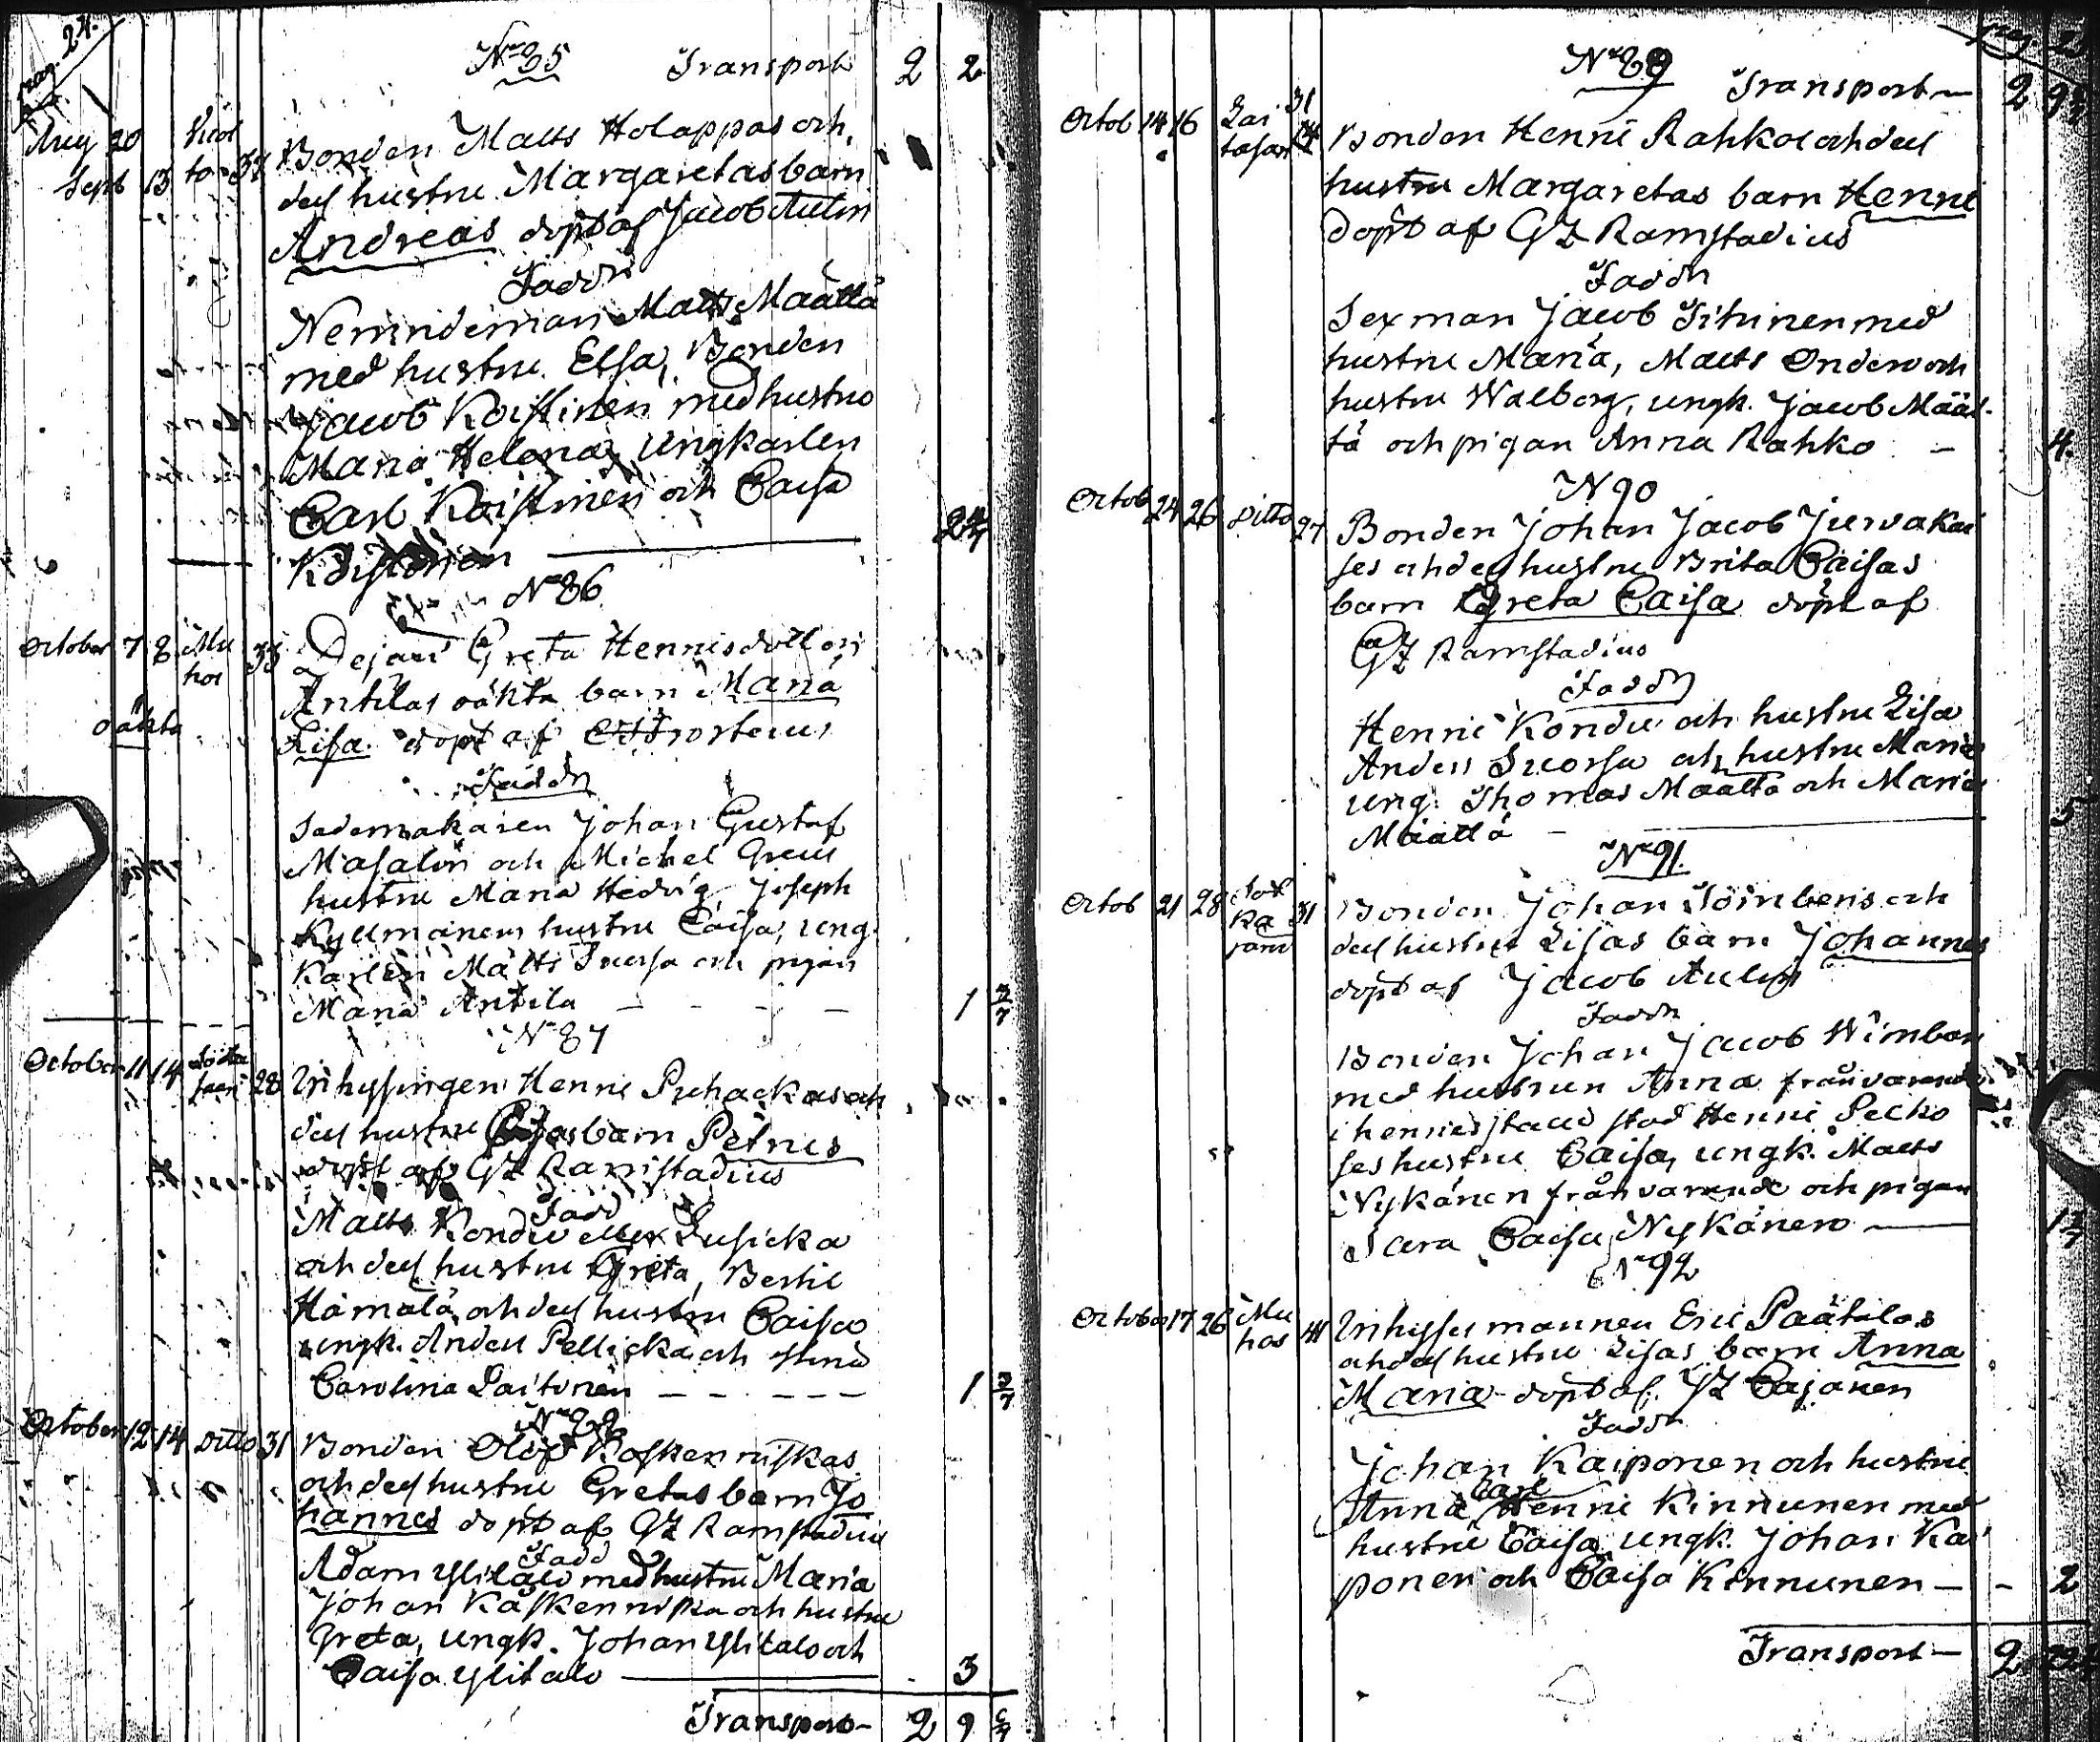 pag. 24.
No 85 Transport 2 2
Aug 20 Sept 13 37
Bonden Matts Holappas och
des hustru Margaretas barn
Andreas döpt af Jacob Aulin
Fadd
Nemndeman Matts Määttä
med hustru Elsa, Bonden
Jacob Koistinen med hustru
Maria Helena, Ungkarlen
Carl Koistinen och Caisa
Koistinen
No 86
October 7 8 Mu hos 33
oäkta
Pejari Greta Hennisdotters
Antilas oäkta barn Maria
Lisa döpt af
Faddr
Sademakaren Johan Gustaf
Masalin och Michel Greus
hustru Maria Hedvig, Joseph
Kyllmänens hustru Caisa, ung
karlen Matts Suorsa och pigan
Maria Antila — — — 1 3/7
No 87
October 11 14 28
Inhysingen Henric Puhackas och
des hustru barn Petrus
döpt af GZ Ramstadius
Fadd
Matts Kondu eller Lusicka
och des hustru Greta, Bertil
Hämälä och des hustru Caisa
ungk. Anders Pellicka och Stina
Carolina Laitonen — — — — 1 3/7
No 88
October 12 14 Ditto 31
Bonden Olof Koskenniskas
och des hustru Gretas barn Jo
hannes döpt af GZ Ramstadius
Fadd
Adam Ylitalo med hustru Maria
Johan Käskenniska och hustru
Greta, ungk. Johan Ylitalo och
Caisa Ylitalo — 3
Transport — 2 9
No 89
Transport — 2 9
Octob 14 16 31
Bonden Henric Rahkos och des
hustru Margaretas barn Henric
döpt af GZ Ramstadius
Faddr
Sexman Jacob Tihinen med
hustru Maria, Matts Onders och
hustru Walborg, ungk. Jacob Määt-
tä och pigan Anna Rahko — 4
N 90
Octob 24 26 Ditto 27
Bonden Johan Jacob Jurvakai
ses och des hustru Brita Caisas
barn Greta Caisa döpt af
GZ Ramstadius
Faddr
Henric Kondu och hustru Lisa
Anders Suorsa och hustru Maria
ung. Thomas Määttä och Maria
Määttä — 5
No 91.
Octob 21 28 Sot ka jami 31
Bonden Johan Törnbergs och
des hustru Lisas barn Johannes
döpt af Jacob Aulin
Faddr
Bonden Johan Jacob Wimban
med hustrun Anna frånvarande
i hennes stad Henric Pecko
ses hustru Caisa, ungk. Matts
Nykänen frånvarande och pigan
Sara Caisa Nykänen —
No 92
October 17 26 Mu hos
Inhyses mannen Eric Päätalos
och des hustru Lisas barn Anna
Maria döpt af JZ Cajanen
Faddr
Johan Kaiponen och hustru
Anna, Carl Henric Kinnunen med
hustru Caisa, ungk. Johan Kai
ponen och Caisa Kinnunen — 2
Transport — 2